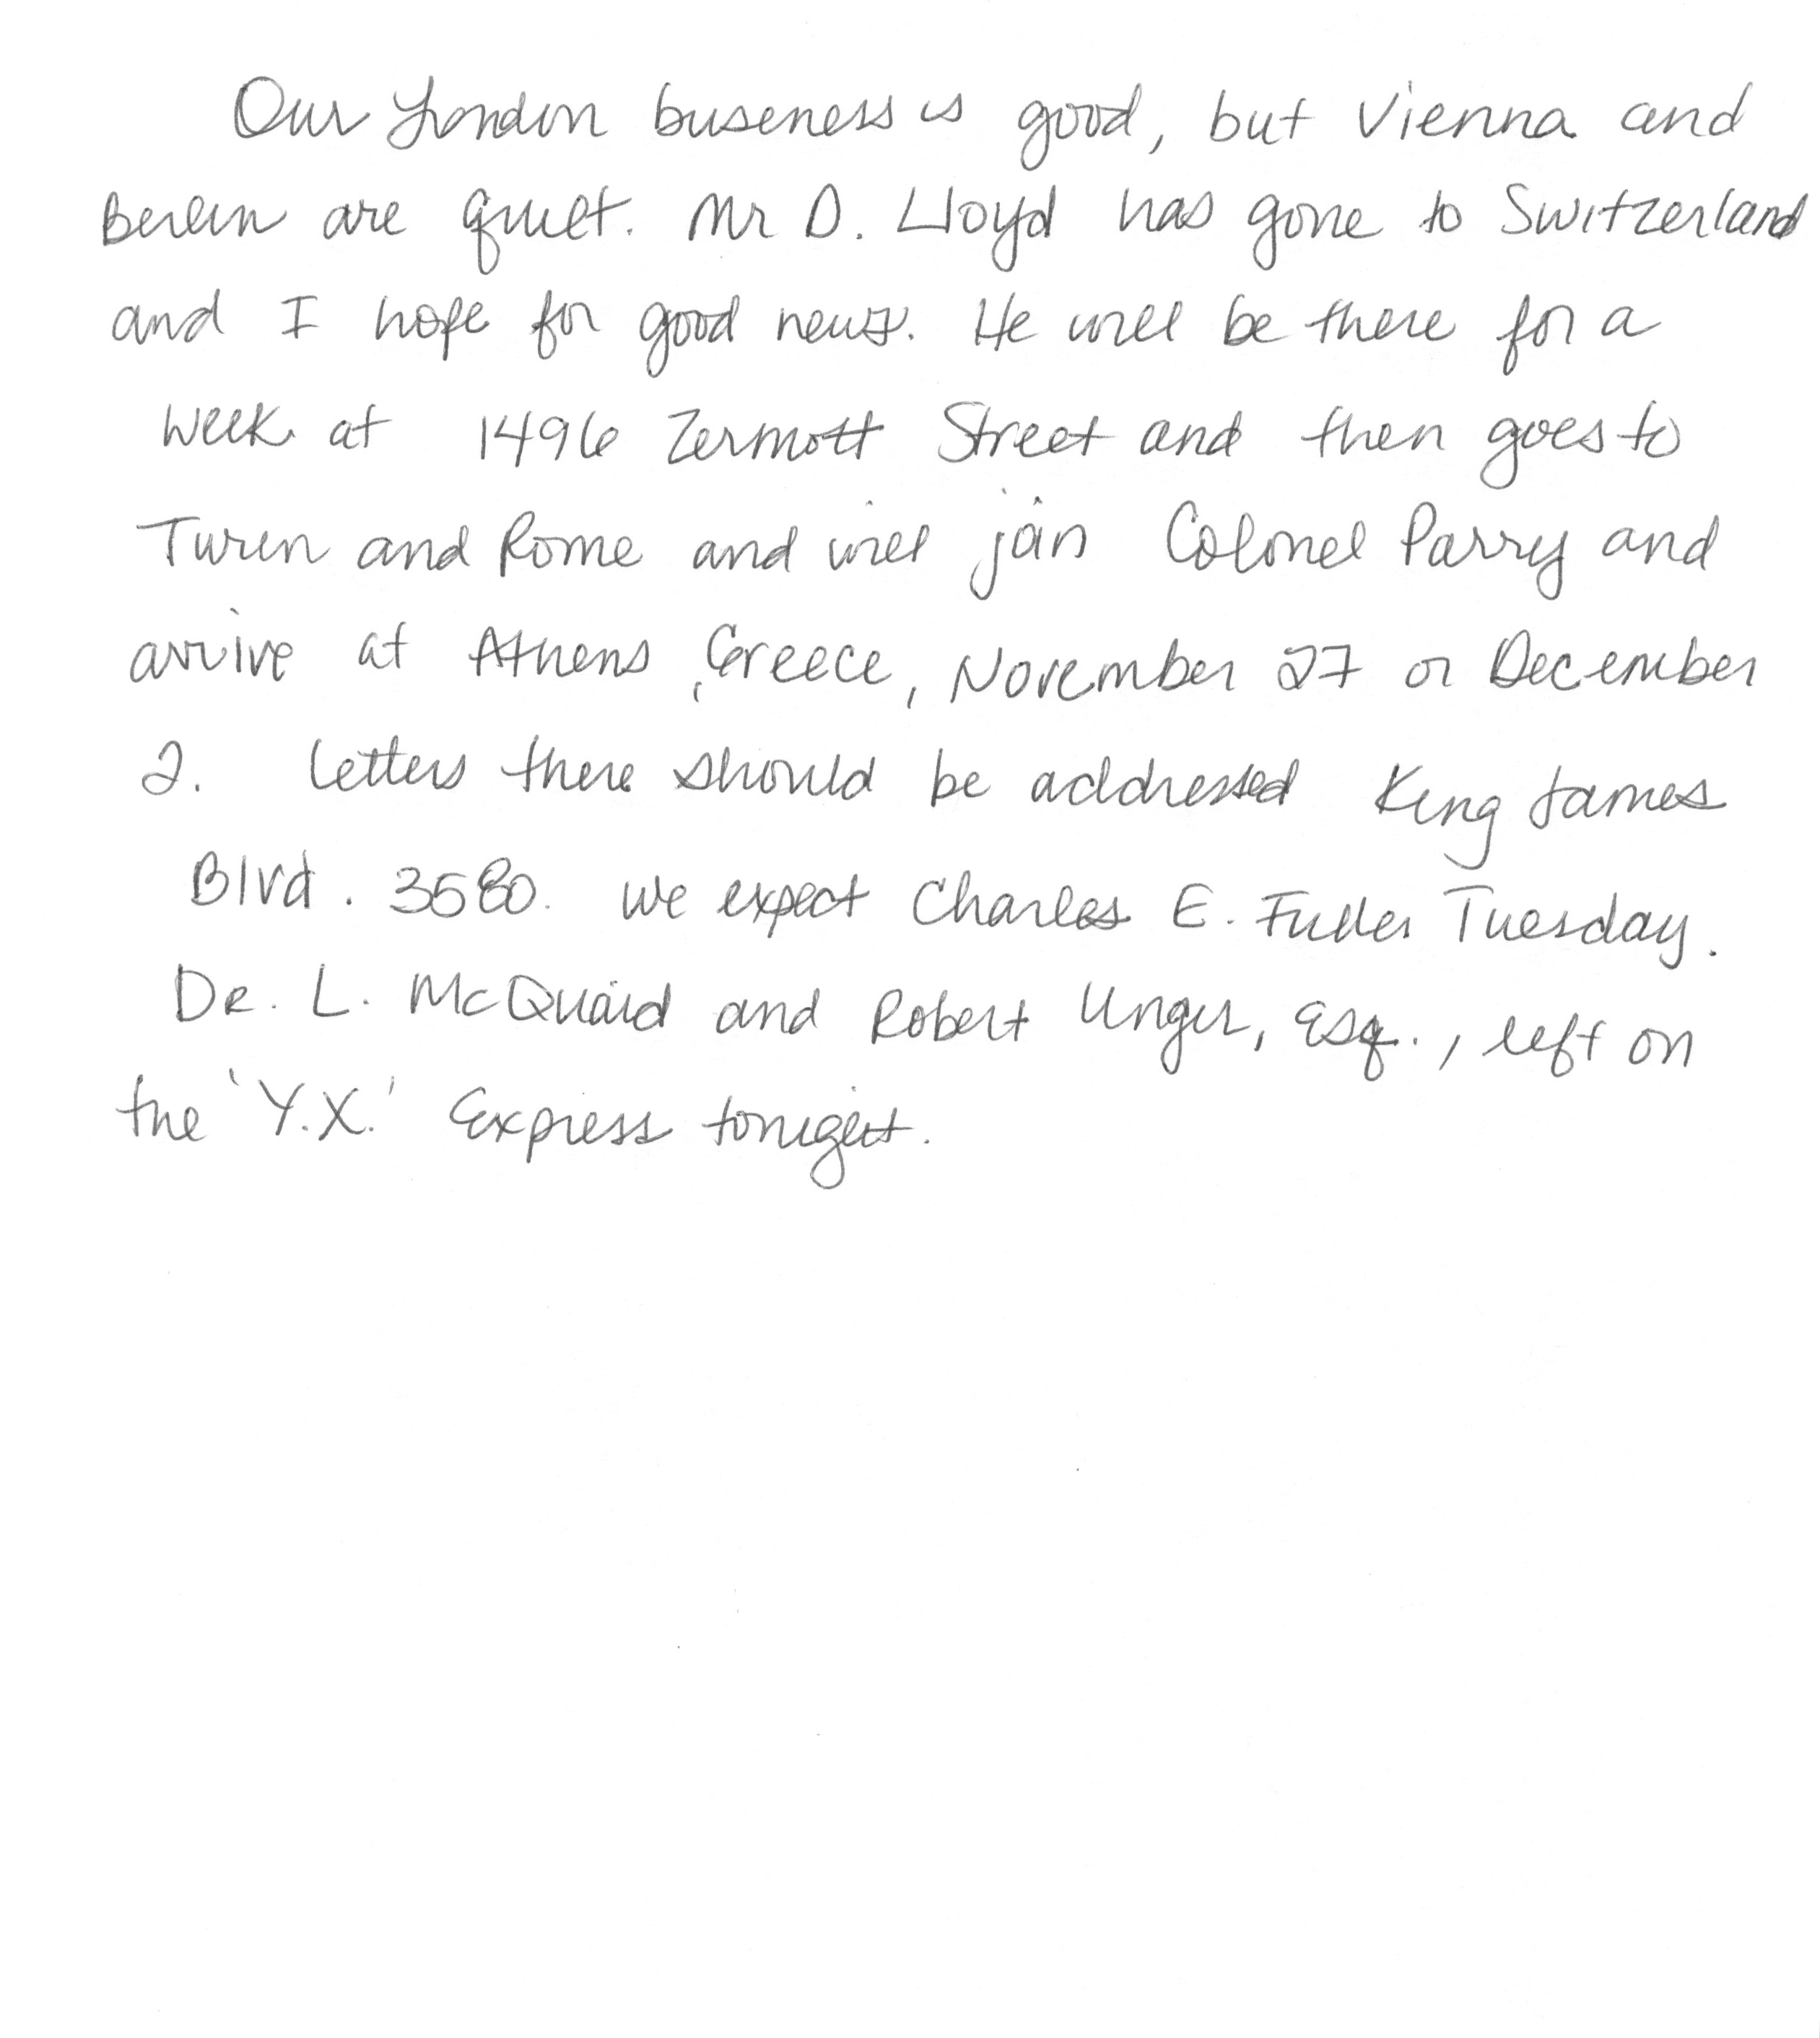 Our London business is good, but Vienna and
Berlin are quiet. Mr D. Lloyd has gone to Switzerland
and I hope for good news. He will be there for a
week at 1496 Zermott Street and then goes to
Turin and Rome and will join Colonel Parry and
arrive at Athens, Greece, November 27 or December
2. Letters there should be addressed King James
Blvd. 3580. We expect Charles E. Fuller Tuesday.
Dr. L. McQuaid and Robert Unger, Esq., left on
the 'Y.X.' Express tonight.